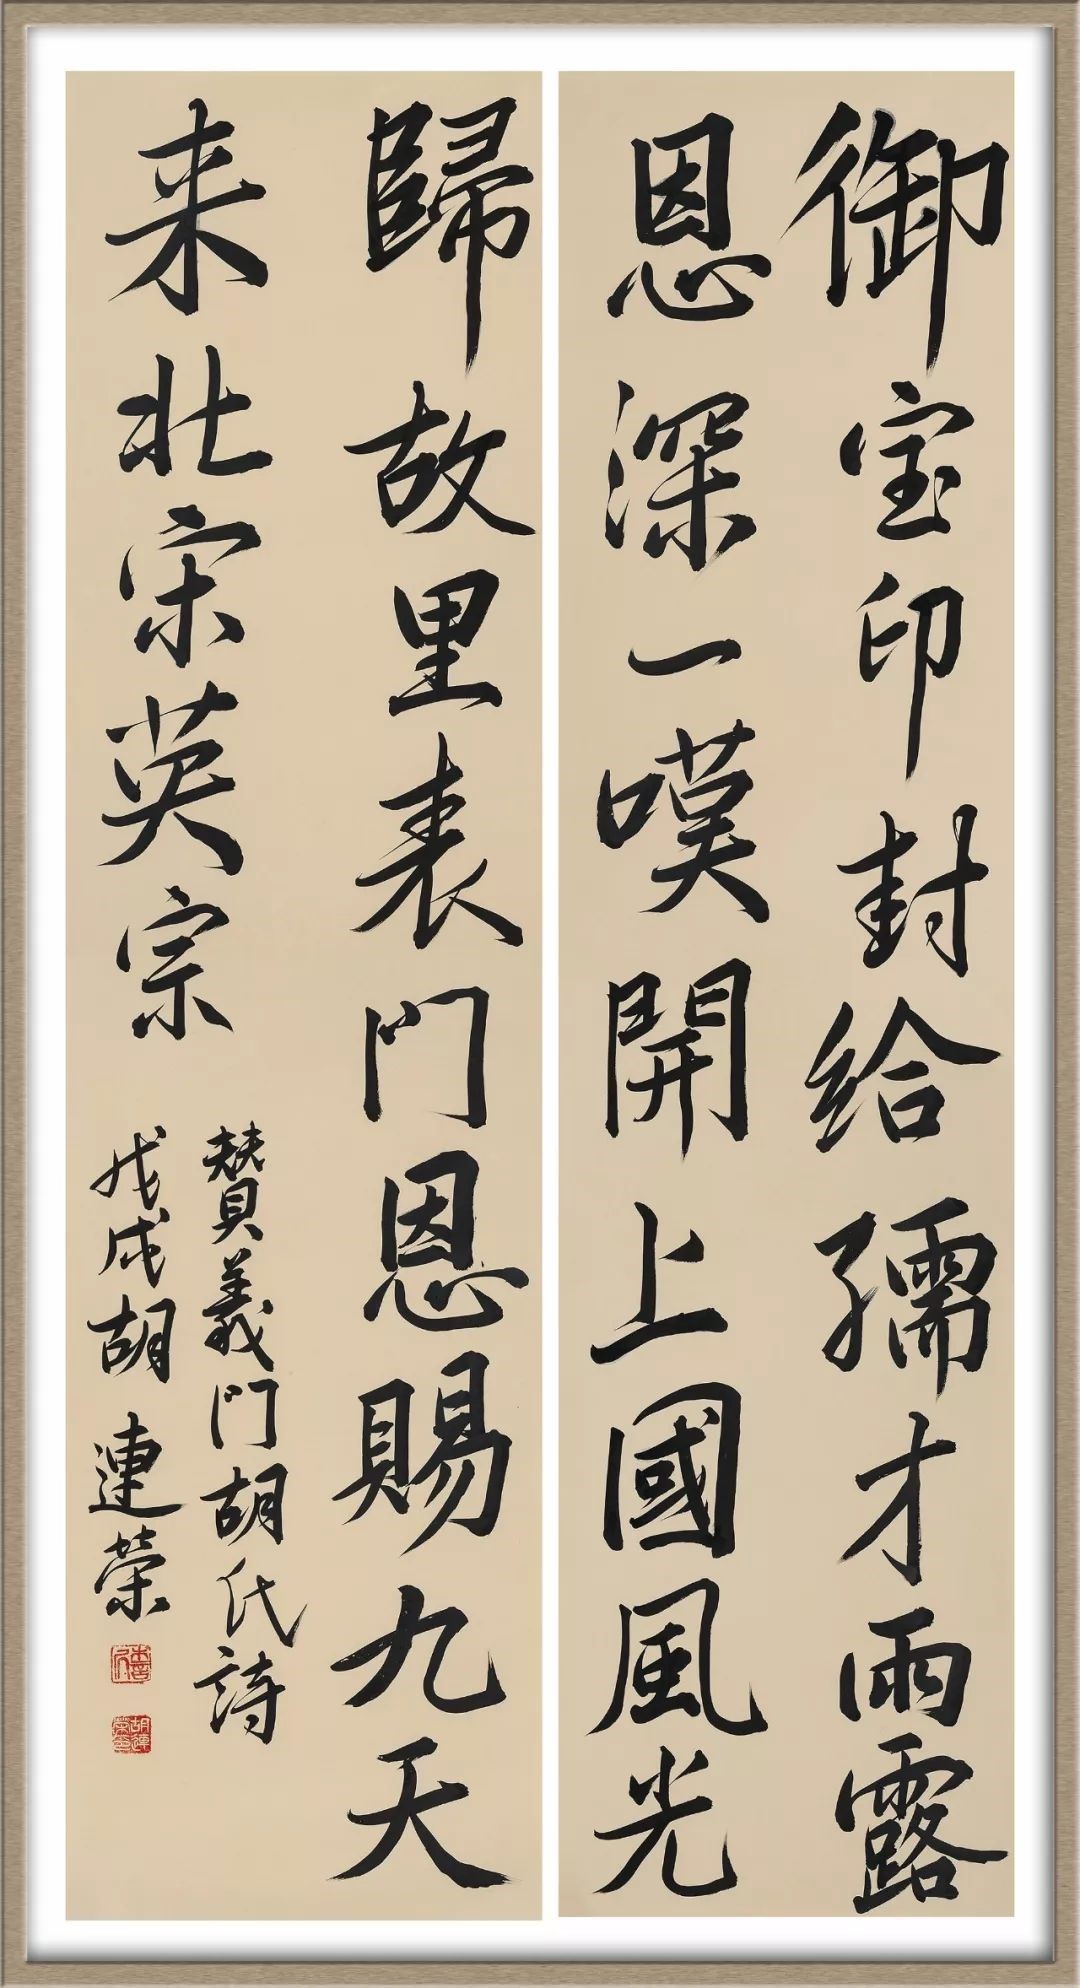 御宝印封给孺才雨露
恩深一嘆開上國風光
歸故里表門恩賜九天
来北宋英宗
贊義門胡氏詩
戊戌胡連榮